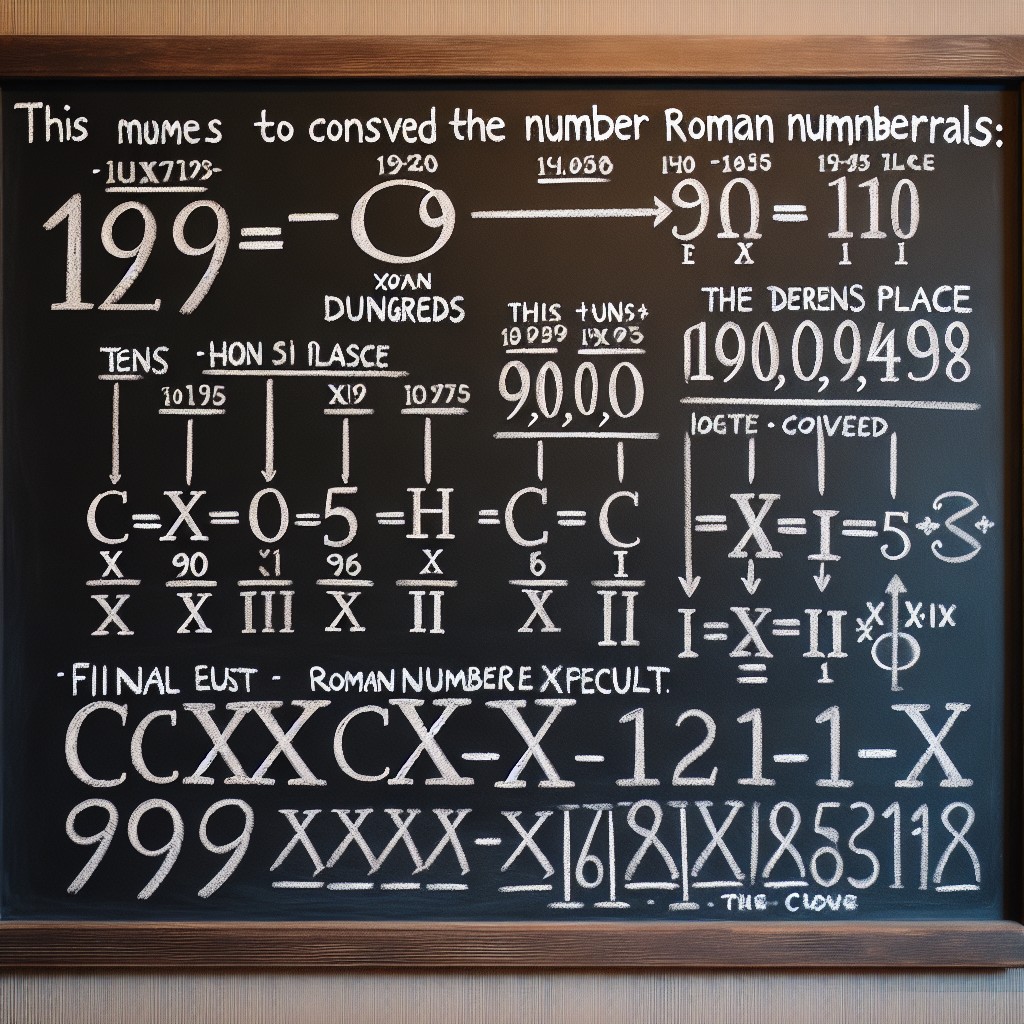 This mumes to consved the number Roman numnberrals:
-1UX7179- 19-20 14.030 140 -1895 19-95 1LCE
199 = - O9 → 9Ω = 110
E X 1 1
XOAN
DUNGREDS
THIS +UNS+
THE DERENS PLACE
10 099 1X 03
190,0,9,498
TENS -HON SI PLASCE
9,0,0,0
10195 X19 10 975
IOETE · COVEED
C=X=O=5=H=C=C
=X=I=5
X 90 96 X 6 I
X X III X II X II
I=X=II
X X·IX
1
-FIINAL EUST - ROMAN NUMBERE XPECULT.
CCXXCX-X-121-1-X
999 XXXX-X
THE CLOVE